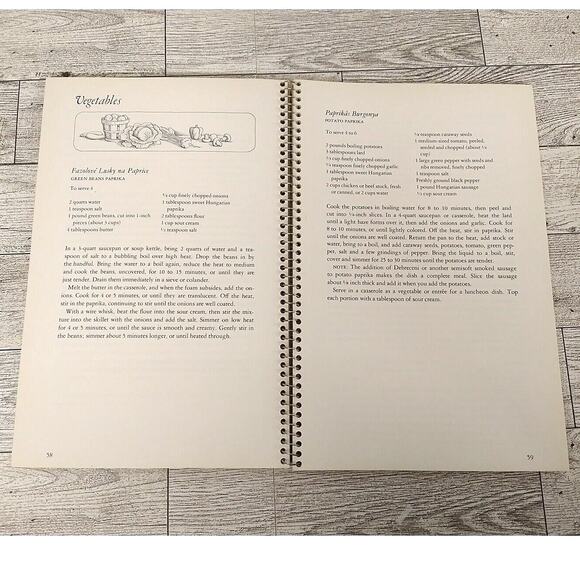 Vegetables
Fazolové Lusky na Paprice
GREEN BEANS PAPRIKA
To serve 4
2 quarts water
1 teaspoon salt
1 pound green beans, cut into 1-inch
pieces (about 3 cups)
4 tablespoons butter
¾ cup finely chopped onions
1 tablespoon sweet Hungarian
paprika
2 tablespoons flour
1 cup sour cream
½ teaspoon salt
In a 3-quart saucepan or soup kettle, bring 2 quarts of water and a tea-
spoon of salt to a bubbling boil over high heat. Drop the beans in by
the handful. Bring the water to a boil again, reduce the heat to medium
and cook the beans, uncovered, for 10 to 15 minutes, or until they are
just tender. Drain them immediately in a sieve or colander.
Melt the butter in the casserole, and when the foam subsides, add the on-
ions. Cook for 4 or 5 minutes, or until they are translucent. Off the heat,
stir in the paprika, continuing to stir until the onions are well coated.
With a wire whisk, beat the flour into the sour cream, then stir the mix-
ture into the skillet with the onions and add the salt. Simmer on low heat
for 4 or 5 minutes, or until the sauce is smooth and creamy. Gently stir in
the beans; simmer about 5 minutes longer, or until heated through.
58
Paprikás Burgonya
POTATO PAPRIKA
To serve 4 to 6
2 pounds boiling potatoes
3 tablespoons lard
cup finely chopped onions
teaspoon finely chopped garlic
1 tablespoon sweet Hungarian
paprika
2 cups chicken or beef stock, fresh
or canned, or 2 cups water
teaspoon caraway seeds
1 medium-sized tomato, peeled,
seeded and chopped (about
cup)
1 large green pepper with seeds and
ribs removed, finely chopped
1 teaspoon salt
Freshly ground black pepper
1 pound Hungarian sausage
½ cup sour cream
Cook the potatoes in boiling water for 8 to 10 minutes, then peel and
cut into ¼-inch slices. In a 4-quart saucepan or casserole, heat the lard
until a light haze forms over it, then add the onions and garlic. Cook for
8 to 10 minutes, or until lightly colored. Off the heat, stir in paprika. Stir
until the onions are well coated. Return the pan to the heat, add stock or
water, bring to a boil, and add caraway seeds, potatoes, tomato, green pep-
per, salt and a few grindings of pepper. Bring the liquid to a boil, stir,
cover and simmer for 25 to 30 minutes until the potatoes are tender.
NOTE: The addition of Debreceni or another semisoft smoked sausage
to potato paprika makes the dish a complete meal. Slice the sausage
about ⅛ inch thick and add it when you add the potatoes.
Serve in a casserole as a vegetable or entrée for a luncheon dish. Top
each portion with a tablespoon of sour cream.
59